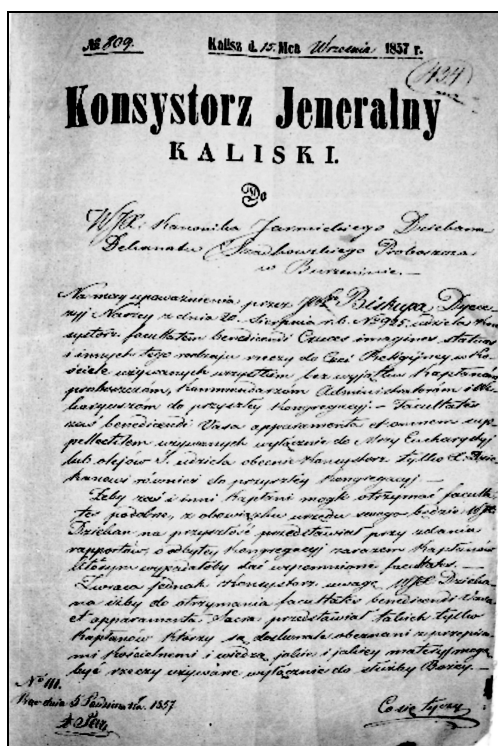 № 809. Kalisz d. 15. Mca Września 1857 r.
434
Konsystorz Jeneralny
KALISKI.
Do
WJX. Kanonika Jarnickiego Dziekana
Dekanatu Szadkowskiego Proboszcza
w Burzeninie. —
Na mocy upoważnienia przez Biskupa Dyece-
zyi Naszej z dnia 20. Sierpnia r. b. № 925. udziela Kon-
systorz facultatem benedicendi Cruces imagines statuas
i innych tego rodzaju rzeczy do Czci Religijnej w Ko-
ściele używanych wszystkim bez wyjątku Kapłanom
proboszczom, Kommendarzom Administratorom i Wi-
karyuszom do przyszłej Kongregacyi. — Facultates
zaś benedicendi Vasa apparamenta et omnem sup-
pellectilem używanych wyłącznie do Mszy Eucharystyi
lub olejów S. udziela obecnie Konsystorz tylko X. Dzie-
kanowi również do przyszłej Kongregacyi —
Żeby zaś i inni Kapłani mogli otrzymać facul-
tates podobne, z obowiązku urzędu swego będzie WJX
Dziekan na przyszłość przedstawiał przy zdaniu
rapportów, o odbytej Kongregacyi zarazem Kapłanów
którym wypadałoby dać wspomnione facultates. —
Zwraca jednak Konsystorz uwagę WJX Dzieka-
na iżby do otrzymania facultates benedicendi Vasa
et apparamenta Sacra przedstawiał takich tylko
Kapłanów którzy są doskonale obeznani z przepisa-
mi kościelnemi i wiedzą jakie i jakiej materyi mogą
być rzeczy używane wyłącznie do służby Bożej. —
№ 111.
dnia 5 Października 1857
Co się tyczy